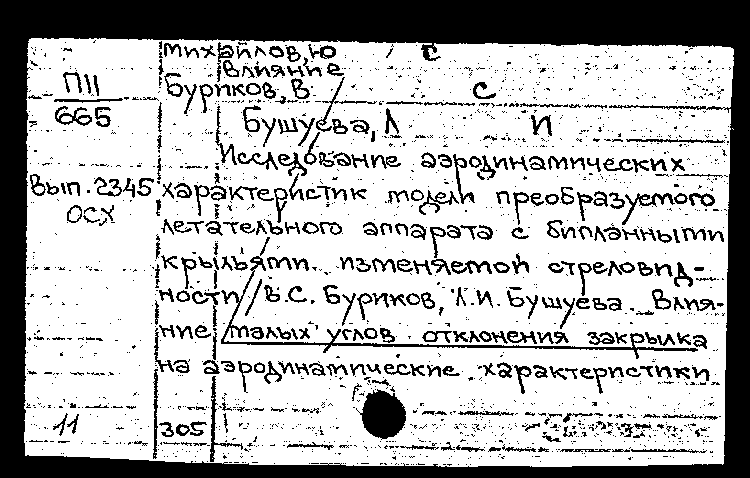 Михайлов, Ю С
Влияние
Буриков, В С
П11
665
Бушуева, Л И
Исследование аэродинамических
Вып. 2345 характеристик модели преобразуемого
ОСХ
летательного аппарата с бипланными
крыльями изменяемой стреловид-
ности / В.С. Буриков, Л.И. Бушуева. Влия-
ние малых углов отклонения закрылка
на аэродинамические характеристики
11 305